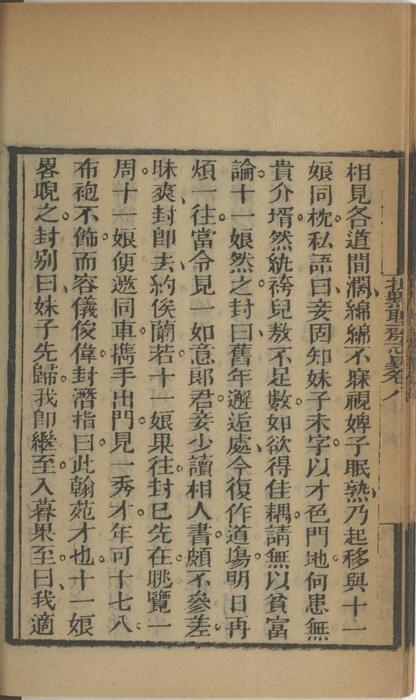 相見各道間濶綿綿不寐視婢子眠熟乃起移與十一
娘同枕私語曰妾固知妹子未字以才色門地何患無
貴介壻然紈袴兒敖不足數如欲得佳耦請無以貧富
論十一娘然之封曰舊年邂逅處今復作道塲明日再
煩一往當令見一如意郎君妾少讀相人書頗不參差
昧爽封即去約俟蘭若十一娘果往封已先在眺覽一
周十一娘便邀同車攜手出門見一秀才年可十七八
布袍不飾而容儀俊偉封潛指曰此翰苑才也十一娘
畧睨之封别曰妹子先歸我即繼至入暮果至曰我適